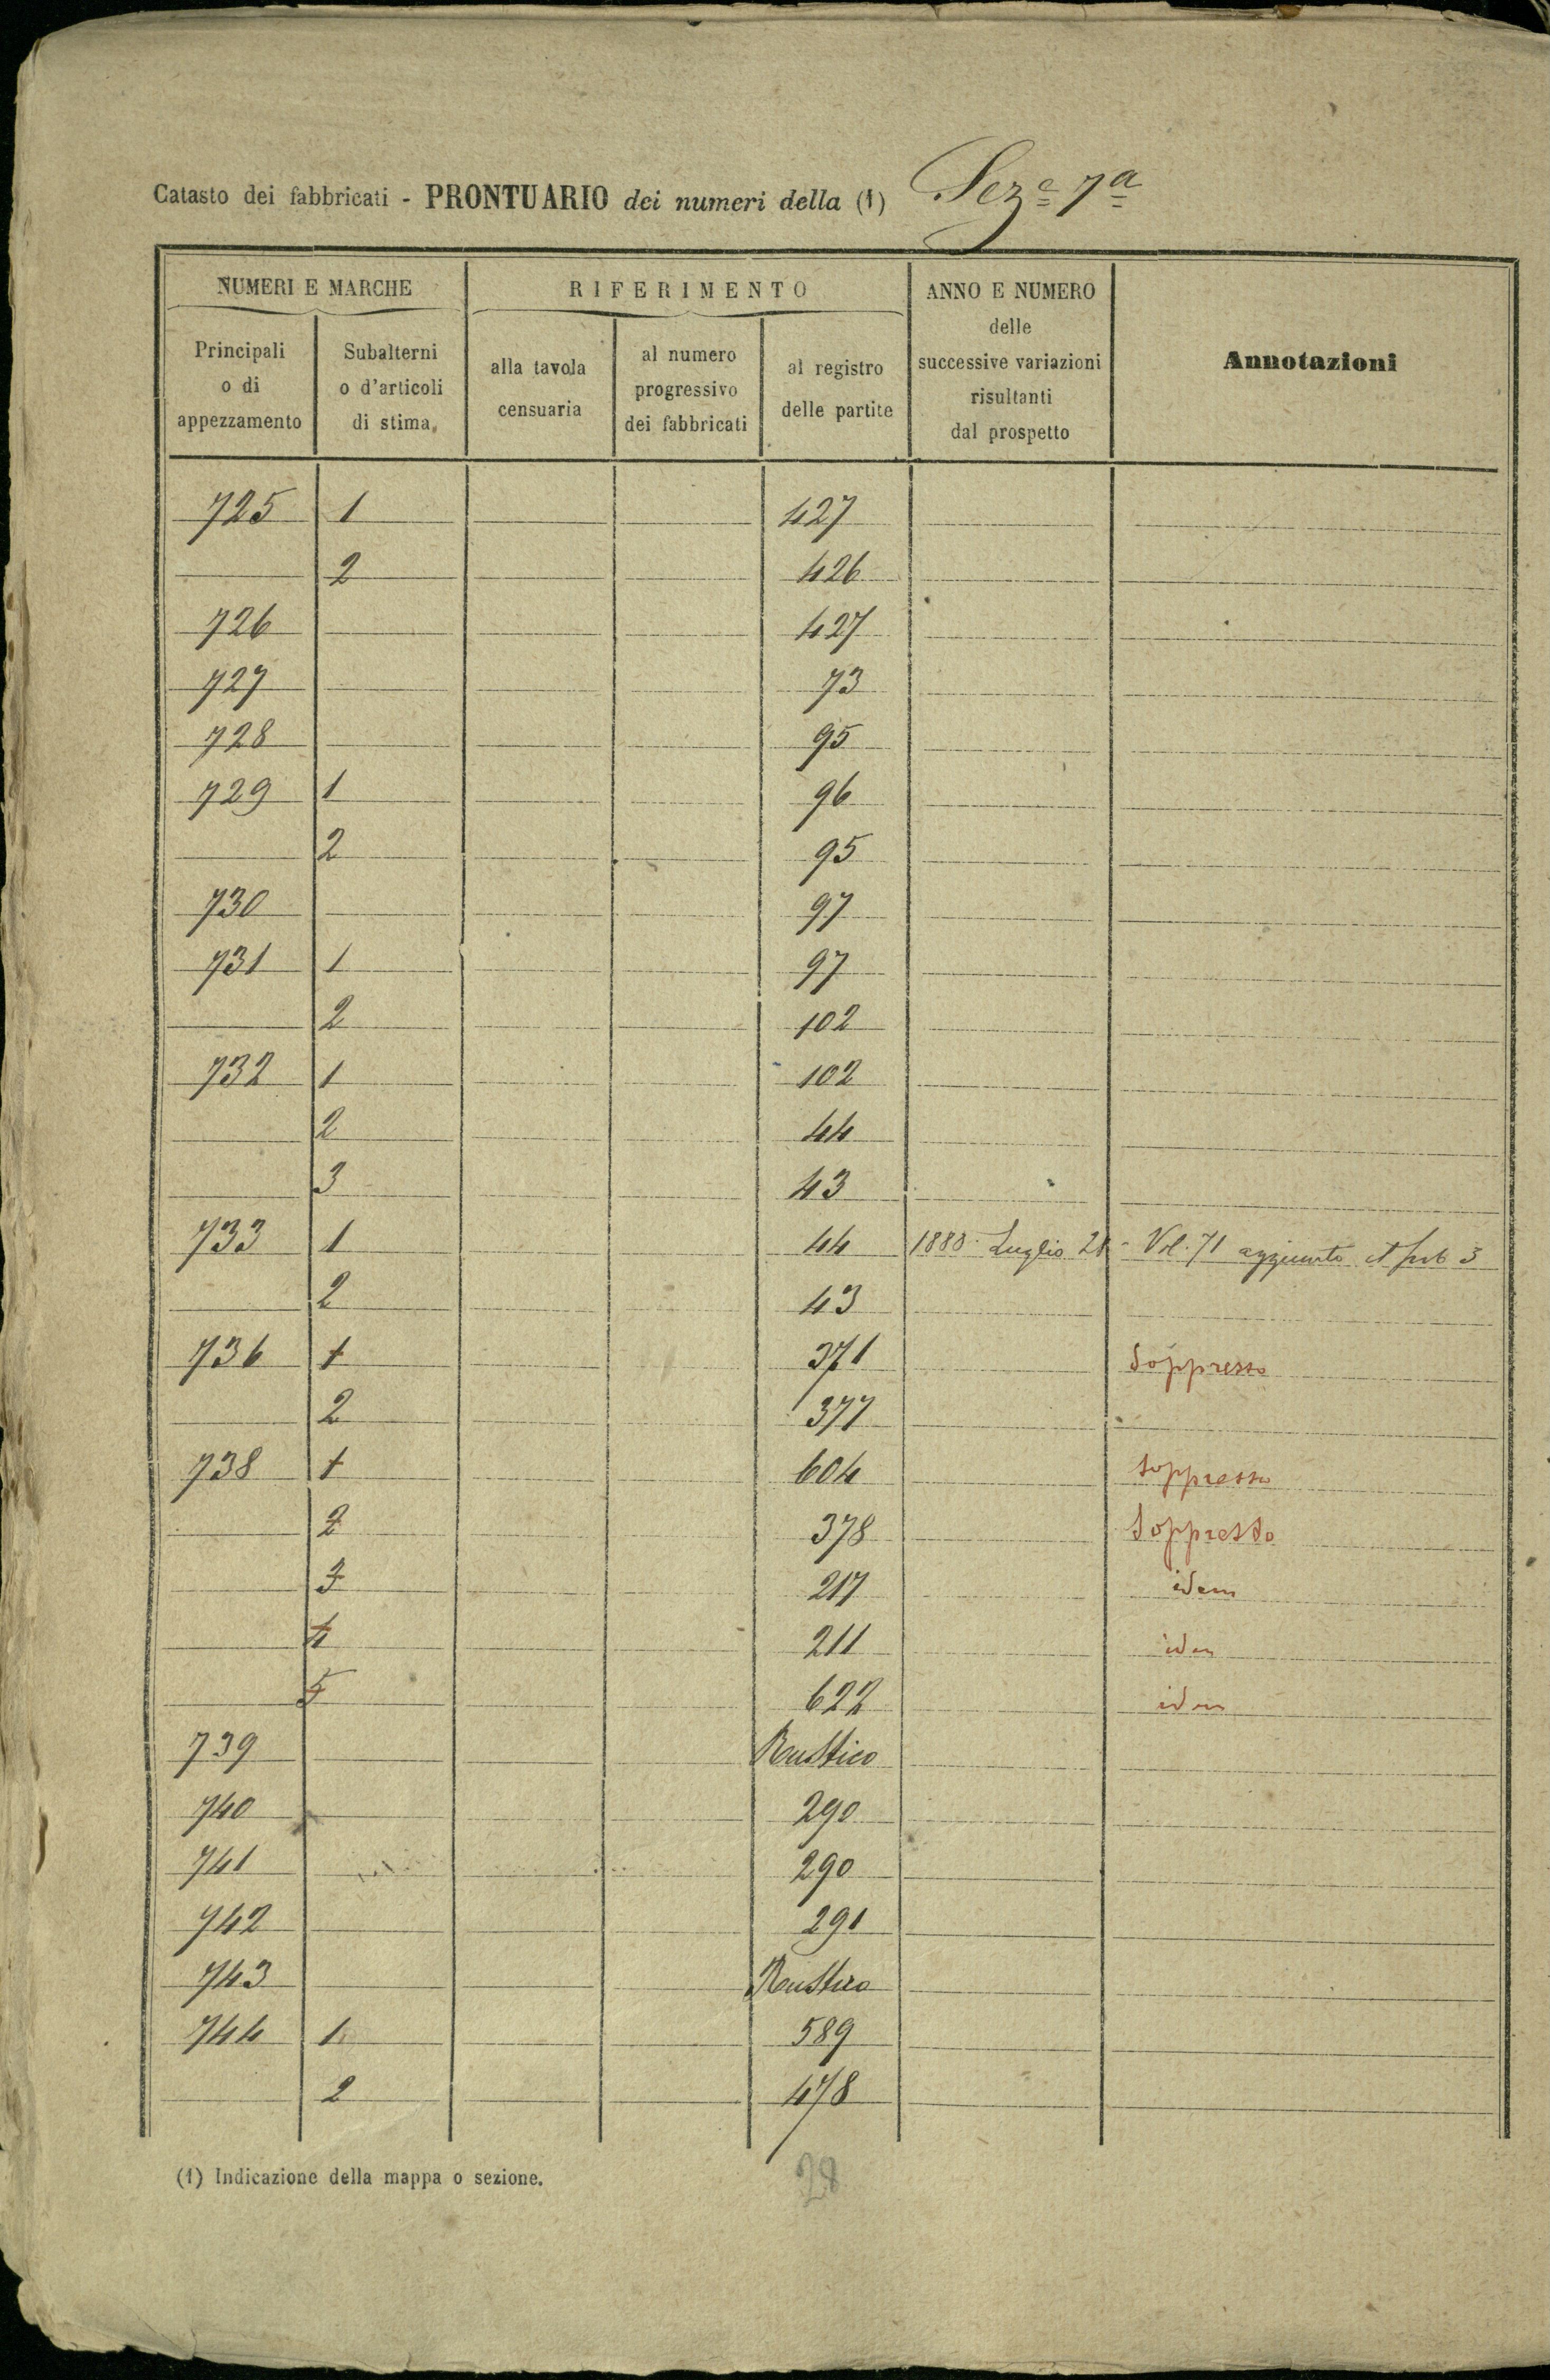 Catasto dei fabbricati - PRONTUARIO dei numeri della (1) Sez.e 7a
NUMERI E MARCHE
RIFERIMENTO
ANNO E NUMERO
delle
successive variazioni
risultanti
dal prospetto
Annotazioni
Principali
o di
appezzamento
Subalterni
o d'articoli
di stima.
alla tavola
censuaria
al numero
progressivo
dei fabbricati
al registro
delle partite
725 1 427
2 426
726 427
727 73
728 95
729 1 96
2 95
730 97
731 1 97
2 102
732 1 102
2 44
3 43
733 1 44 Luglio Vol. 71 aggiunto sub 3
2 43
736 1 371 Soppresso
2 377
738 1 604 soppresso
2 378 Soppresso
3 217 idem
4 211 idem
5 622 idem
739 Rustico
740 290
741 290
742 291
743 Rustico
744 1 589
2 478
(1) Indicazione della mappa o sezione.
28